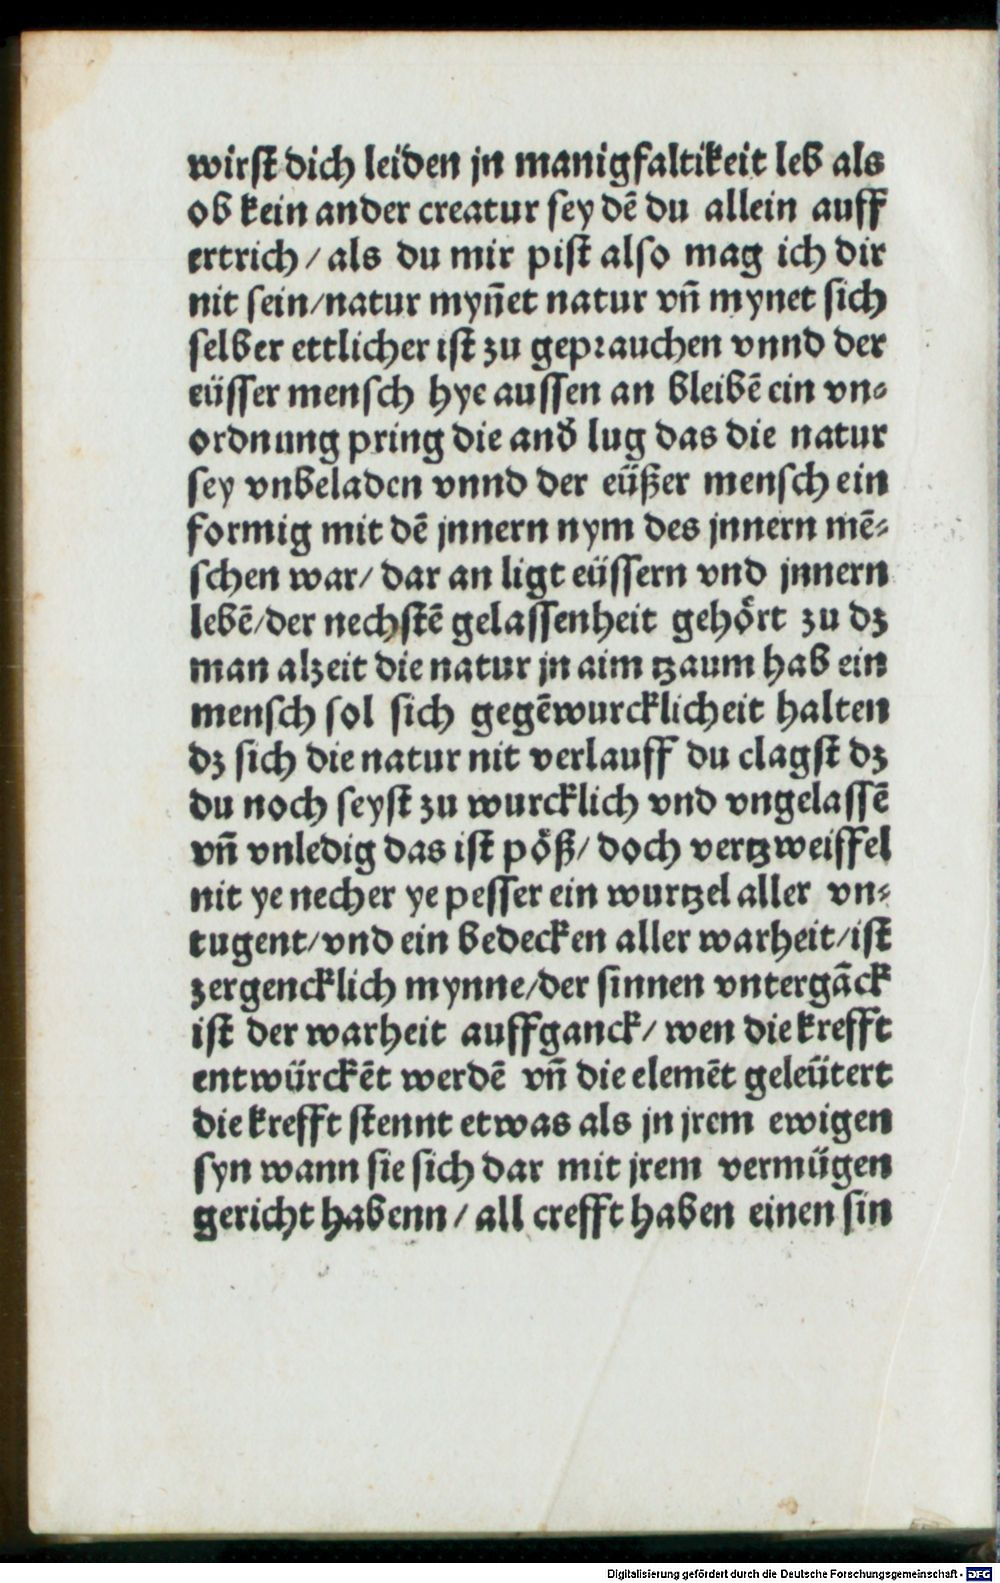 wirſt dich leiden jn manigfaltikeit leb als
ob kein ander creatur ſey dē du allein auff
ertrich / als du mir piſt alſo mag ich dir
nit ſein/natur myn̄et natur vn̄ mynet ſich
ſelber ettlicher iſt zu geprauchen vnnd der
eüſſer menſch hye auſſen an bleibē ein vn⸗
ordnung pring die and̕ lug das die natur
ſey vnbeladen vnnd der eüßer menſch ein
formig mit dē jnnern nym des jnnern mē⸗
ſchen war/ dar an ligt eüſſern vnd jnnern
lebē/der nechſtē gelaſſenheit gehoͤrt zu dz
man alzeit die natur jn aim tzaum hab ein
menſch ſol ſich gegēwurcklicheit halten
dz ſich die natur nit verlauff du clagſt dz
du noch ſeyſt zu wurcklich vnd vngelaſſē
vn̄ vnledig das iſt poͤß/ doch vertzweiffel
nit ye necher ye peſſer ein wurtzel aller vn⸗
tugent/vnd ein bedecken aller warheit/iſt
zergencklich mynne/der ſinnen vntergāck
iſt der warheit auffganck/ wen die krefft
entwürckēt werdē vn̄ die elemēt geleütert
die krefft ſtennt etwas als jn jrem ewigen
ſyn wann ſie ſich dar mit jrem vermügen
gericht habenn / all crefft haben einen ſin
Digitalisierung gefördert durch die Deutsche Forschungsgemeinschaft - DFG